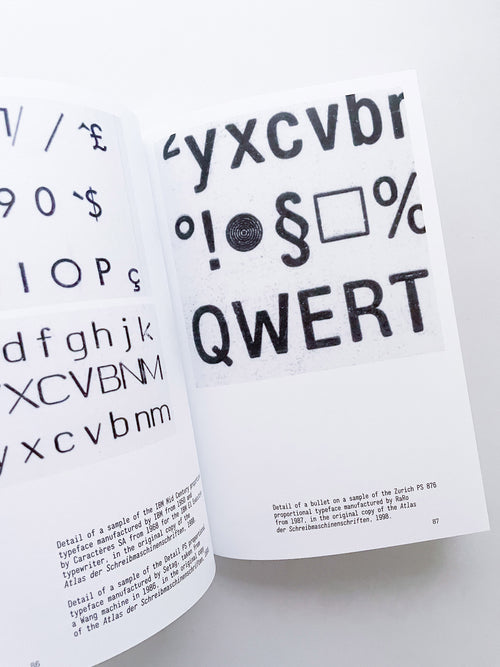 1 / ^£
9 0 `$
I O P ç
d f g h j k
YXCVBNM
y x c v b n m
Detail of a sample of the IBM Mid Century
typeface manufactured by IBM from 1958 and
by Caractères SA from 1968 for the IBM
typewriter, in the original copy of the
Atlas der Schreibmaschinenschriften, 1998.
Detail of a sample of the Detail PS proportional
typeface manufactured by Setag, taken from
a Wang machine in 1986, in the original copy
of the Atlas der Schreibmaschinenschriften,
86
yxcvbn
°!§□%
QWERT
Detail of a bullet on a sample of the Zurich PS 876
proportional typeface manufactured by RaRo
from 1987, in the original copy of the Atlas
der Schreibmaschinenschriften, 1998.
87